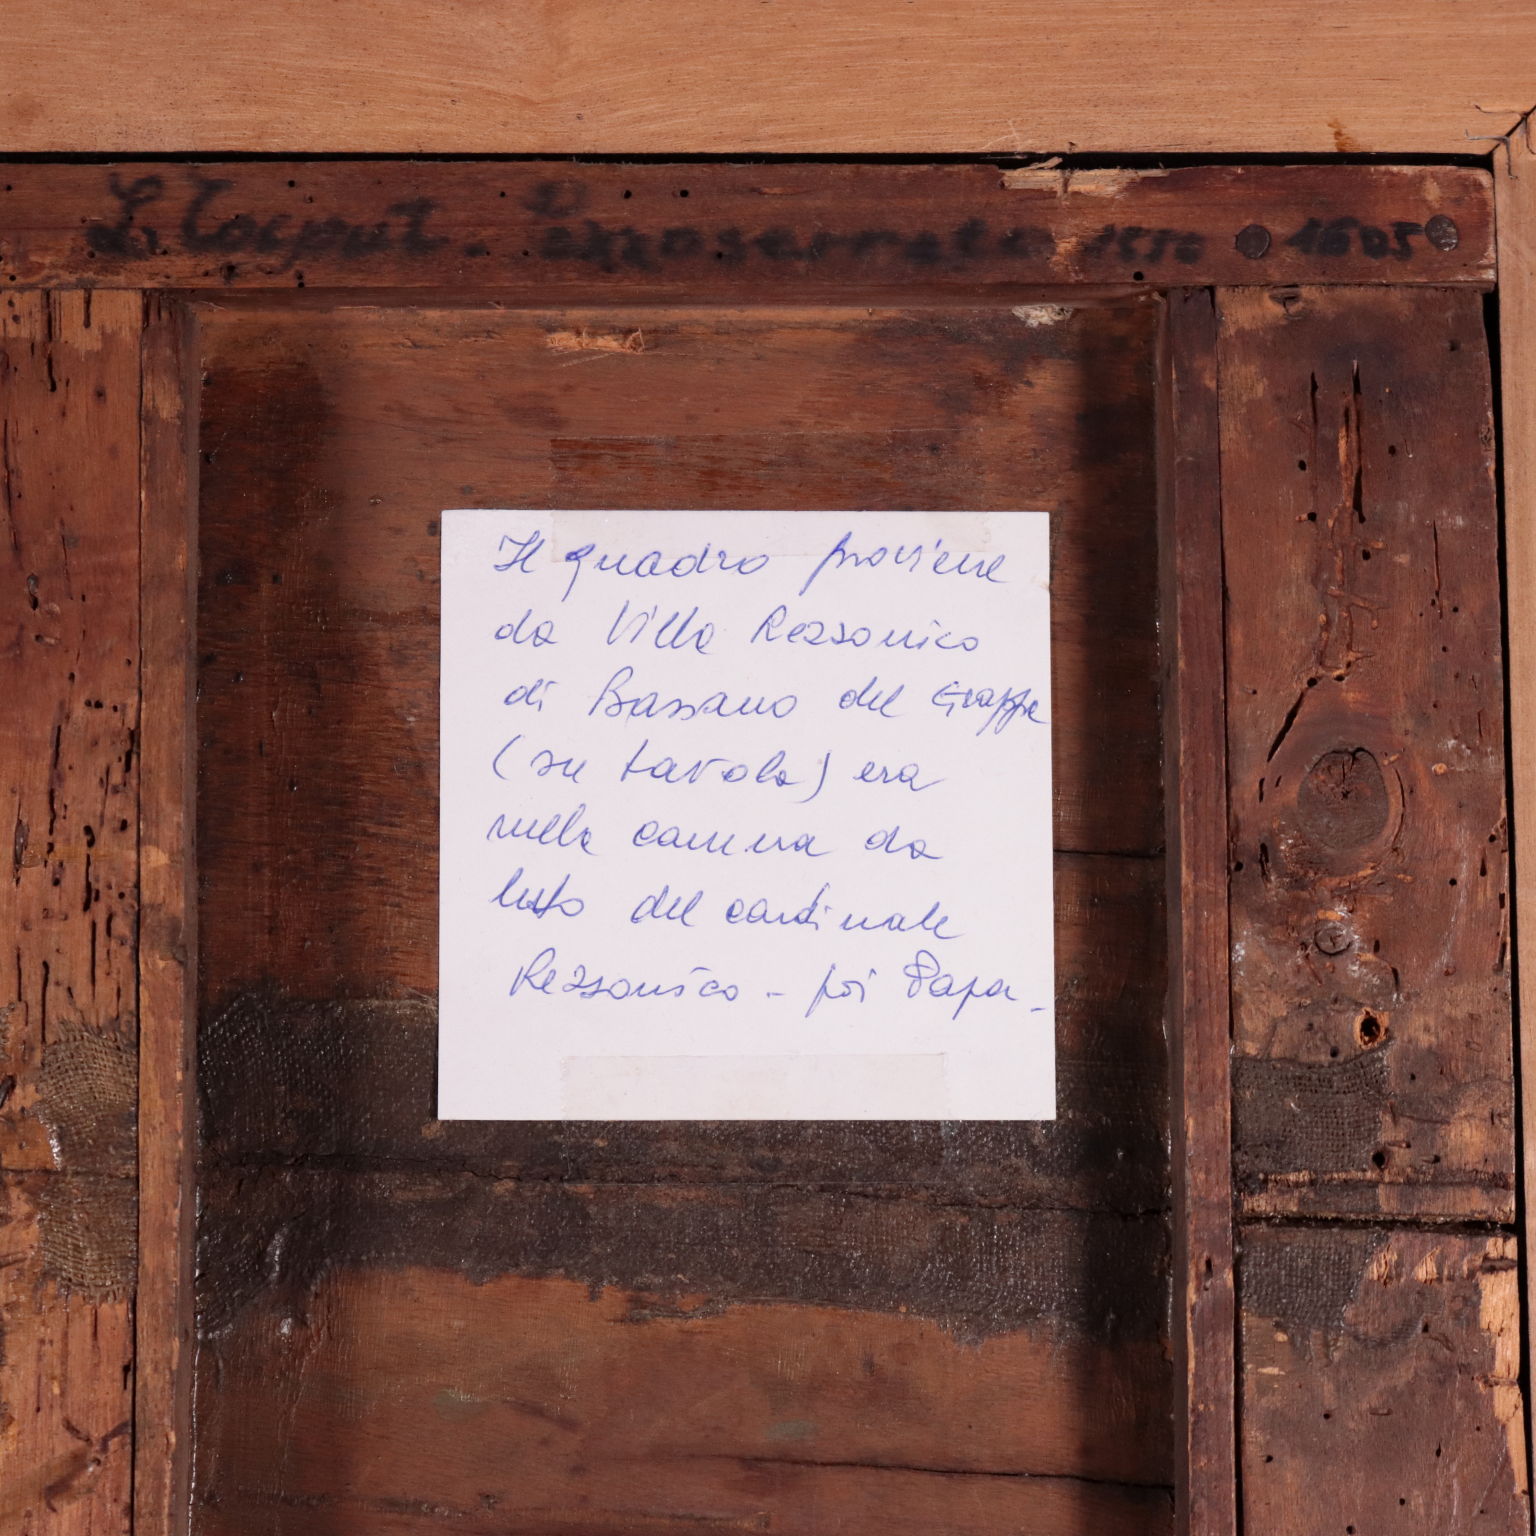 L. Toeput - Pozzoserrato 1550 1605
Il quadro proviene
da Villa Rezzonico
di Bassano del Grappa
(su tavola) era
nella camera da
letto del cardinale
Rezzonico - poi Papa -